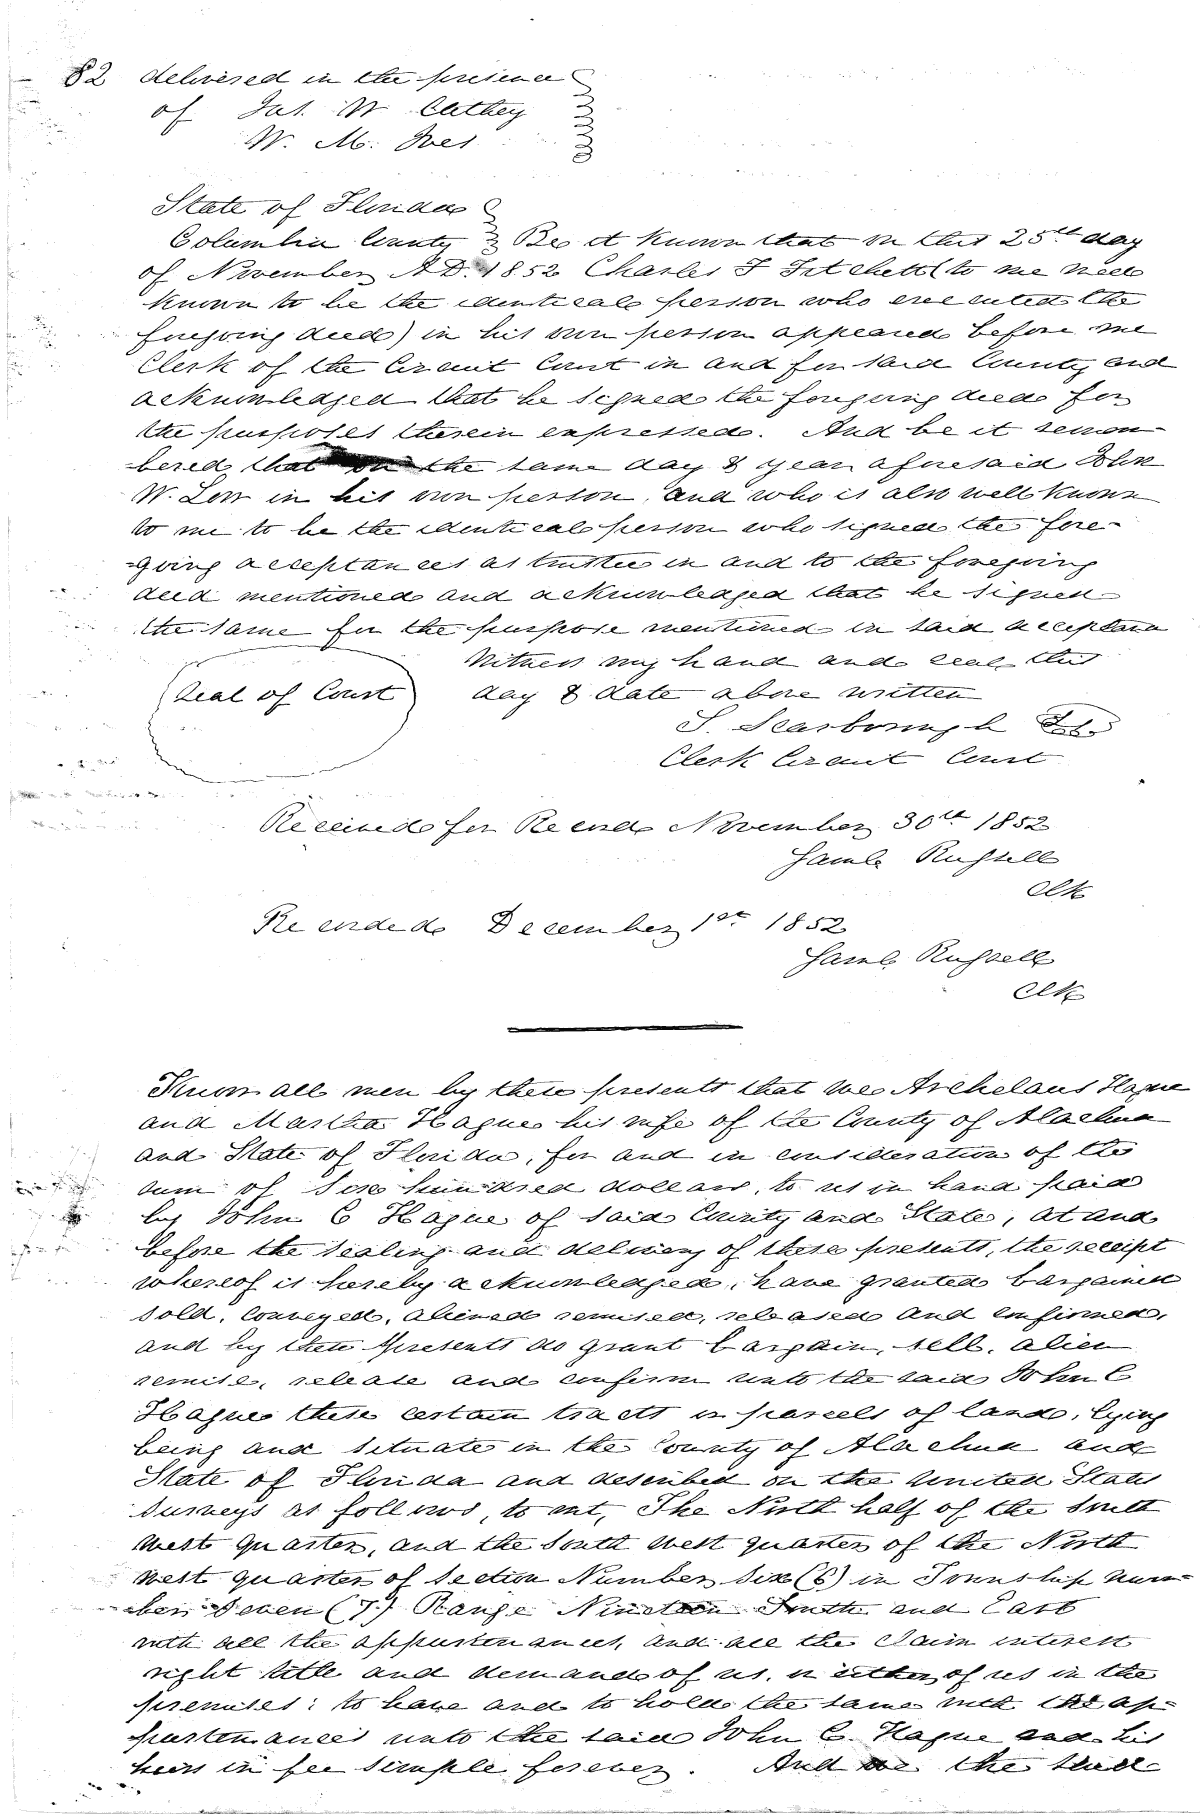 82 delivered in the presence
of Jas. W Cathey
W. M. Ives
State of Florida
Columbia County Be it known that on this 25th day
of November A.D. 1852 Charles F Fitchett (to me well
known to be the identical person who executed the
foregoing deed) in his own person appeared before me
Clerk of the Circuit Court in and for said County and
acknowledged that he signed the foregoing deed for
the purposes therein expressed. And be it remem-
bered that on the same day & year aforesaid John
W. Low in his own person, and who is also well known
to me to be the identical person who signed the fore-
going acceptances as trustee in and to the foregoing
deed mentioned and acknowledged that he signed
the same for the purpose mentioned in said acceptance
Witness my hand and seal this
Seal of Court day & date above written
S. Scarborough L.S.
Clerk Circuit Court
Received for Record November 30th 1852
Saml. Russell
Clk
Recorded December 1st 1852
Saml. Russell
Clk
Know all men by these presents that we Archelaus Hague
and Martha Hague his wife of the County of Alachua
and State of Florida, for and in consideration of the
sum of Six hundred dollars, to us in hand paid
by John C Hague of said County and State, at and
before the sealing and delivery of these presents, the receipt
whereof is hereby acknowledged, have granted bargained
sold, conveyed, aliened remised, released and confirmed,
and by these presents do grant bargain, sell, alien
remise, release and confirm unto the said John C
Hague these certain tracts or parcels of land, lying
being and situate in the County of Alachua and
State of Florida and described on the United States
Surveys as follows, to wit, The North half of the South
west quarter, and the South west quarter of the North
west quarter of Section Number Six (6) in Township num-
ber Seven (7) Range Nineteen South and East
with all the appurtenances, and all the claim interest
right title and demand of us, or either of us in the
premises: to have and to hold the same with the ap-
purtenances unto the said John C. Hague and his
heirs in fee simple forever. And we the said